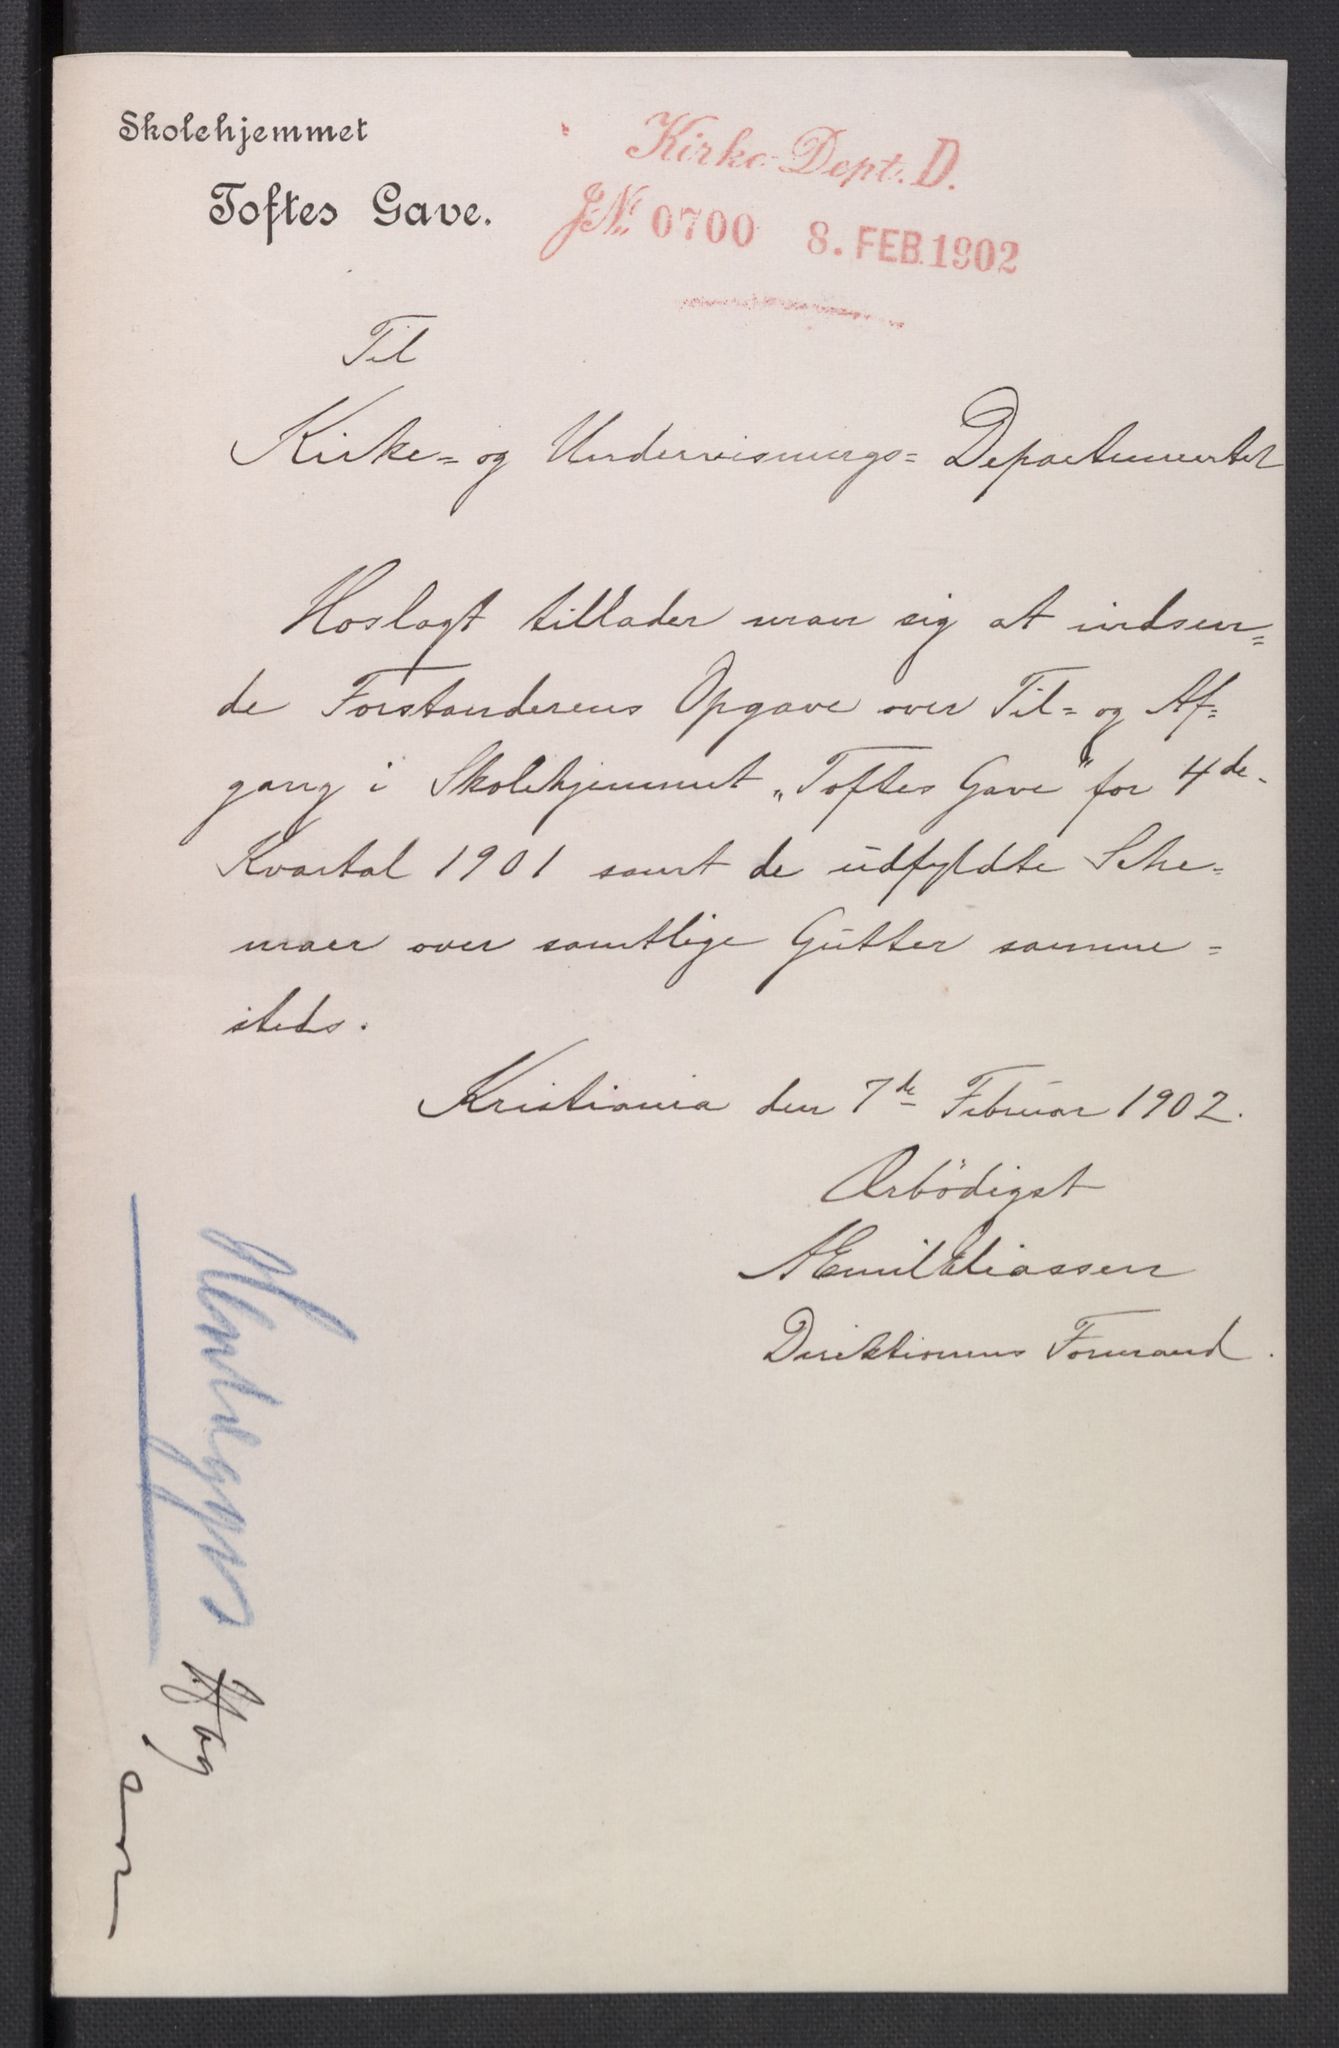 Skolehjemmet
Toftes Gave.
Kirke-Dept. D.
J.№ 0700 8. FEB. 1902
Til
Kirke= og Undervisnings= Departementet
Hoslagt tillader man sig at indsen=
de Forstanderens Opgave over Til= og Af=
gang i Skolehjemmet „Toftes Gave" for 4de
Kvartal 1901 samt de udfyldte Sche=
maer over samtlige Gutter samme=
steds.
Kristiania den 7de Februar 1902.
Ærbödigst
A Emil Eliassen
Direktionens Formand.
Henlægges